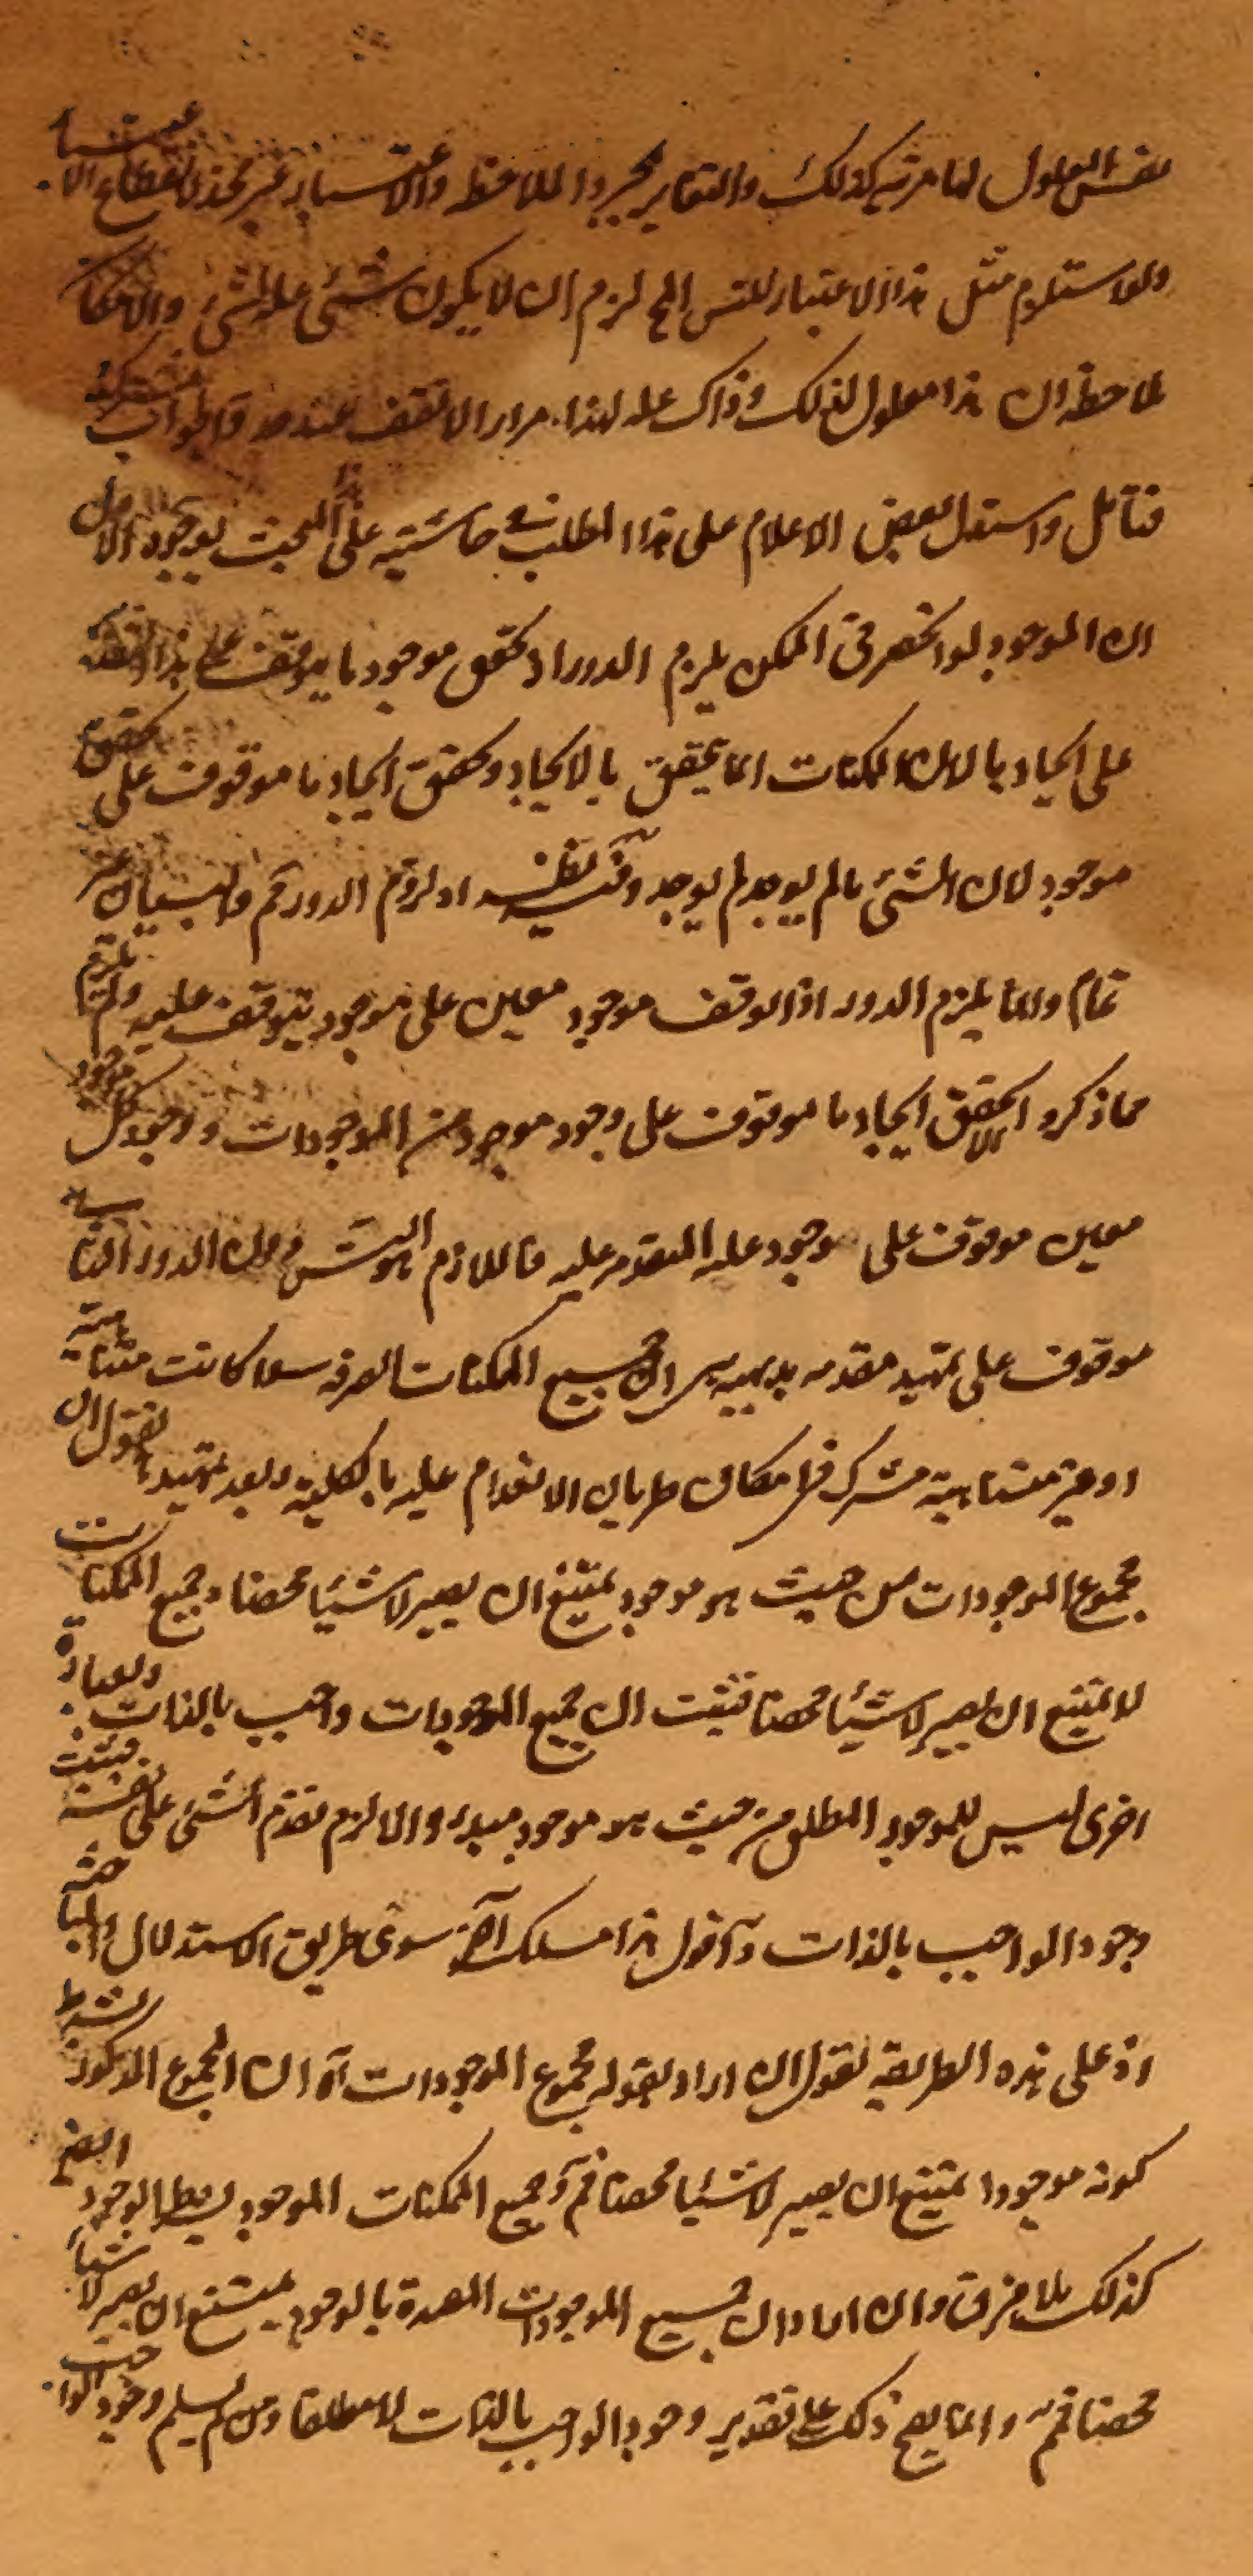 نفس المعلول لها مرتبة كذلك والتغاير بمجرد الملاحظة والاعتبار غير مجد لانقطاع الاعتبار
ولو استلزم مثل هذا الاعتبار للتس المح لزم ان لا يكون شئى علة لشئ والامكان
ملاحظة ان هذا معلول لذلك وذاك علة لهذا مرارا لا تقف عند حد والجواب مشترك
فتأمل واستدل بعض الاعلام على هذا المطلب في حاشيته على هذا المبحث بوجوه الاول
ان الموجود لو انحصر فى الممكن يلزم الدور اذ تحقق موجود ما يتوقف على هذا التقدير
على ايجاد ما لان الممكنات انما يتحقق بالايجاد وتحقق ايجاد ما موقوف على تحقق
موجود لان الشئ ما لم يوجد لم يوجد وفيه نظر اذ لزوم الدور مم والبيان غير
تمام وانما يلزم الدور اذا توقف موجود معين على موجود يتوقف عليه ولم يلزم
مما ذكر الا تحقق ايجاد ما موقوف على وجود موجود من الموجودات ووجود كل موجود
معين موقوف على وجود علة المتقدم عليه فاللازم هو التس دون الدور الثانى
موقوف على تمهيد مقدمه بديهيه ان جميع الممكنات الصرفه سواء كانت متناهية
او غير متناهية مشترك فى امكان طريان الانعدام عليه بالكلية وبعد تمهيدها نقول ان
مجموع الموجودات من حيث هو موجود يمتنع ان يصير لا شيئا محضا وجميع الممكنات
لا يمتنع ان يصير لا شيئا محضا فثبت ان جميع الموجودات واجب بالذات وبعبارة
اخرى ليس للموجود المطلق من حيث هو موجود مبدء والا لزم تقدم الشئ على نفسه فثبت
وجود الواجب بالذات واقول هذا مسلك آخر سوى طريق الاستدلال والمباحثه
اذ على هذه الطريقه نقول ان اراد بقوله مجموع الموجودات آه ان المجموع المذكور بشرط
كونه موجودا يمتنع ان يصير لا شيئا محضا فم وجميع الممكنات الموجود بشرط الوجود ايضا
كذلك بلا فرق وان اراد ان جميع الموجودات المعدة بالوجود يمتنع ان يصير لا شيئا
محضا فم وانما يصح ذلك على تقدير وجود الواجب بالذات لا مطلقا ومن لم يسلم وجود الواجب